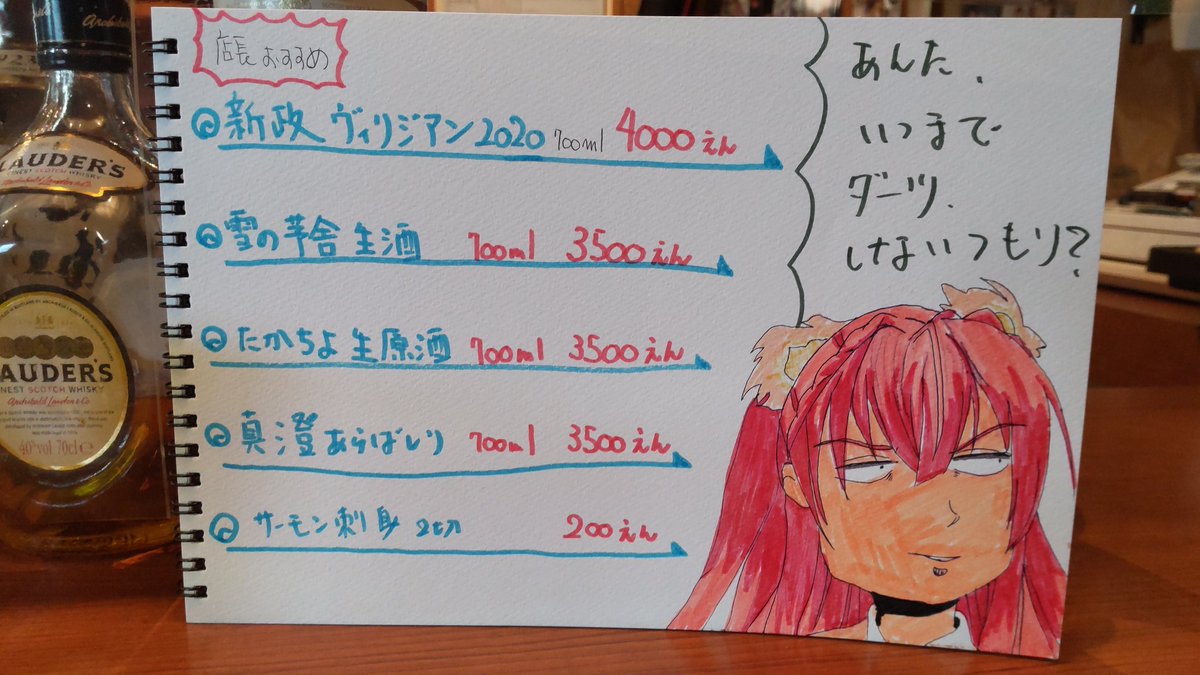 店長おすすめ
新政 ヴィリジアン2020 700ml 4000えん
雪の茅舎 生酒 700ml 3500えん
たかちよ 生原酒 700ml 3500えん
真澄 あらばしり 700ml 3500えん
サーモン刺身 2切 200えん
あんた、
いつまで
ダーツ、
しないつもり?
LAUDER'S
FINEST SCOTCH WHISKY
Archibald Lauder & Co
LAUDER'S
FINEST SCOTCH WHISKY
Archibald Lauder & Co
40%vol 70cl e